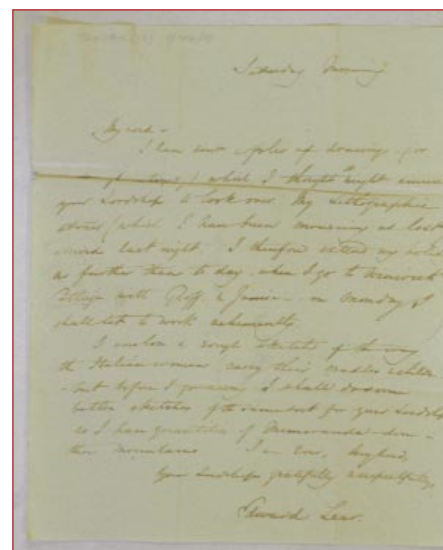 Saturday Morning
My Lord –
I have sent a folio of drawings (or
which I thought might amuse
your Lordship to look over. My Lithographic
stones (which I have been mourning as lost
last night. I therefore extend my
no further than to day, when I go to
Cottage with & – on Monday I
shall set to work vehemently.
I enclose a rough sketch of the way
the Italian women carry their cradles & children
– but before I go away I shall do some
better sketches of the same sort for your Lordship
as I have quantities of Memoranda done in
their mountains. I am now, my Lord,
Your Lordships gratefully & respectfully,
Edward Lear.